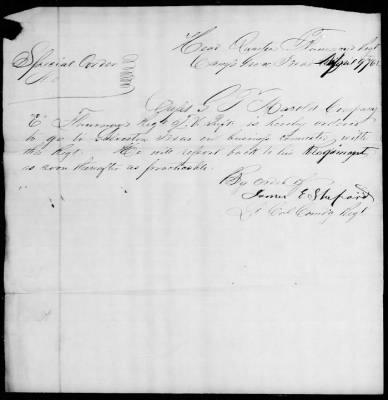 Head Quarters Flournoys Regt
Special Order
Camp Texas August 9th 6
Capt G T Harold Company
"E" Flournoys Regt of T. V. Infty is hereby ordered
to go to Galveston Texas on business connected with
this Regt. He will report back to his Regiment
as soon thereafter as practicable.
By order of
James E Shepard
Lt Col Comdg Regt